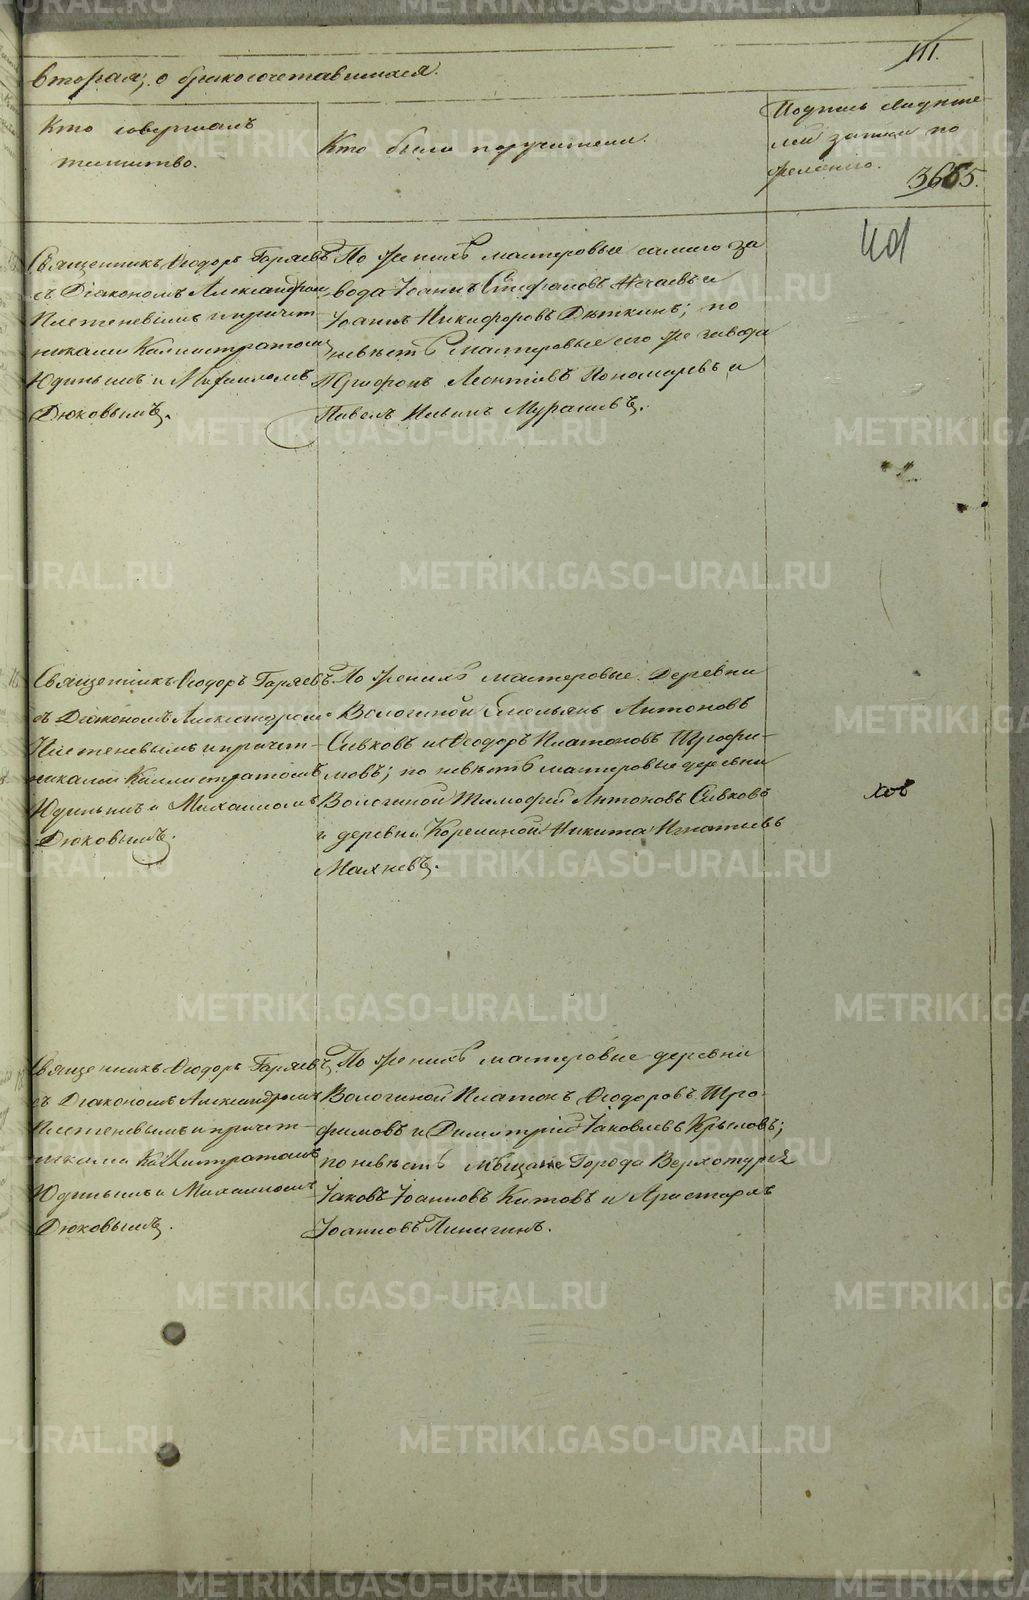 III.
вторая, о бракосочетавшихся.
Кто совершалъ
таинство.
Кто были поручители.
Подпись свидѣте
лей записи по
желанію.
3665.
Священникъ Ѳеодоръ Горяевъ
съ Діакономъ Александром
Плетеневымъ и причет
никами Каллистратомъ
Юдинымъ и Михаиломъ
Дюковымъ.
По женихѣ мастеровые самаго за
вода Іоаннъ Стефановъ Нечаевъ и
Іоаннъ Никифоровъ Дѣткинъ; по
невѣстѣ мастеровые сего же завода
Трифонъ Леонтіевъ Пономаревъ и
Павелъ Ильинъ Мурашевъ.
Священникъ Ѳеодоръ Горяевъ
съ Діакономъ Александромъ
Плетеневымъ и причет-
никами Каллистратомъ
Юдинымъ и Михаиломъ
Дюковымъ.
По женихѣ мастеровые деревни
Вологиной Емельянъ Антоновъ
Сивковъ и Ѳеодоръ Платоновъ Трофи-
мовъ; по невѣстѣ мастеровые деревни
Вологиной Тимофей Антоновъ Сивковъ
и деревни Корелиной Никита Игнатьевъ
Махневъ.
Священникъ Ѳеодоръ Горяевъ
съ Діакономъ Александромъ
Плетеневымъ и причет-
никами Каллистратомъ
Юдинымъ и Михаиломъ
Дюковымъ.
По женихѣ мастеровые деревни
Вологиной Платонъ Ѳеодоровъ Тро-
фимовъ и Димитрій Іаковлевъ Крыловъ;
по невѣстѣ мѣщане Города Верхотурья
Іаковъ Іоанновъ Китовъ и Аристархъ
Іоанновъ Пинигинъ.
METRIKI.GASO-URAL.RU